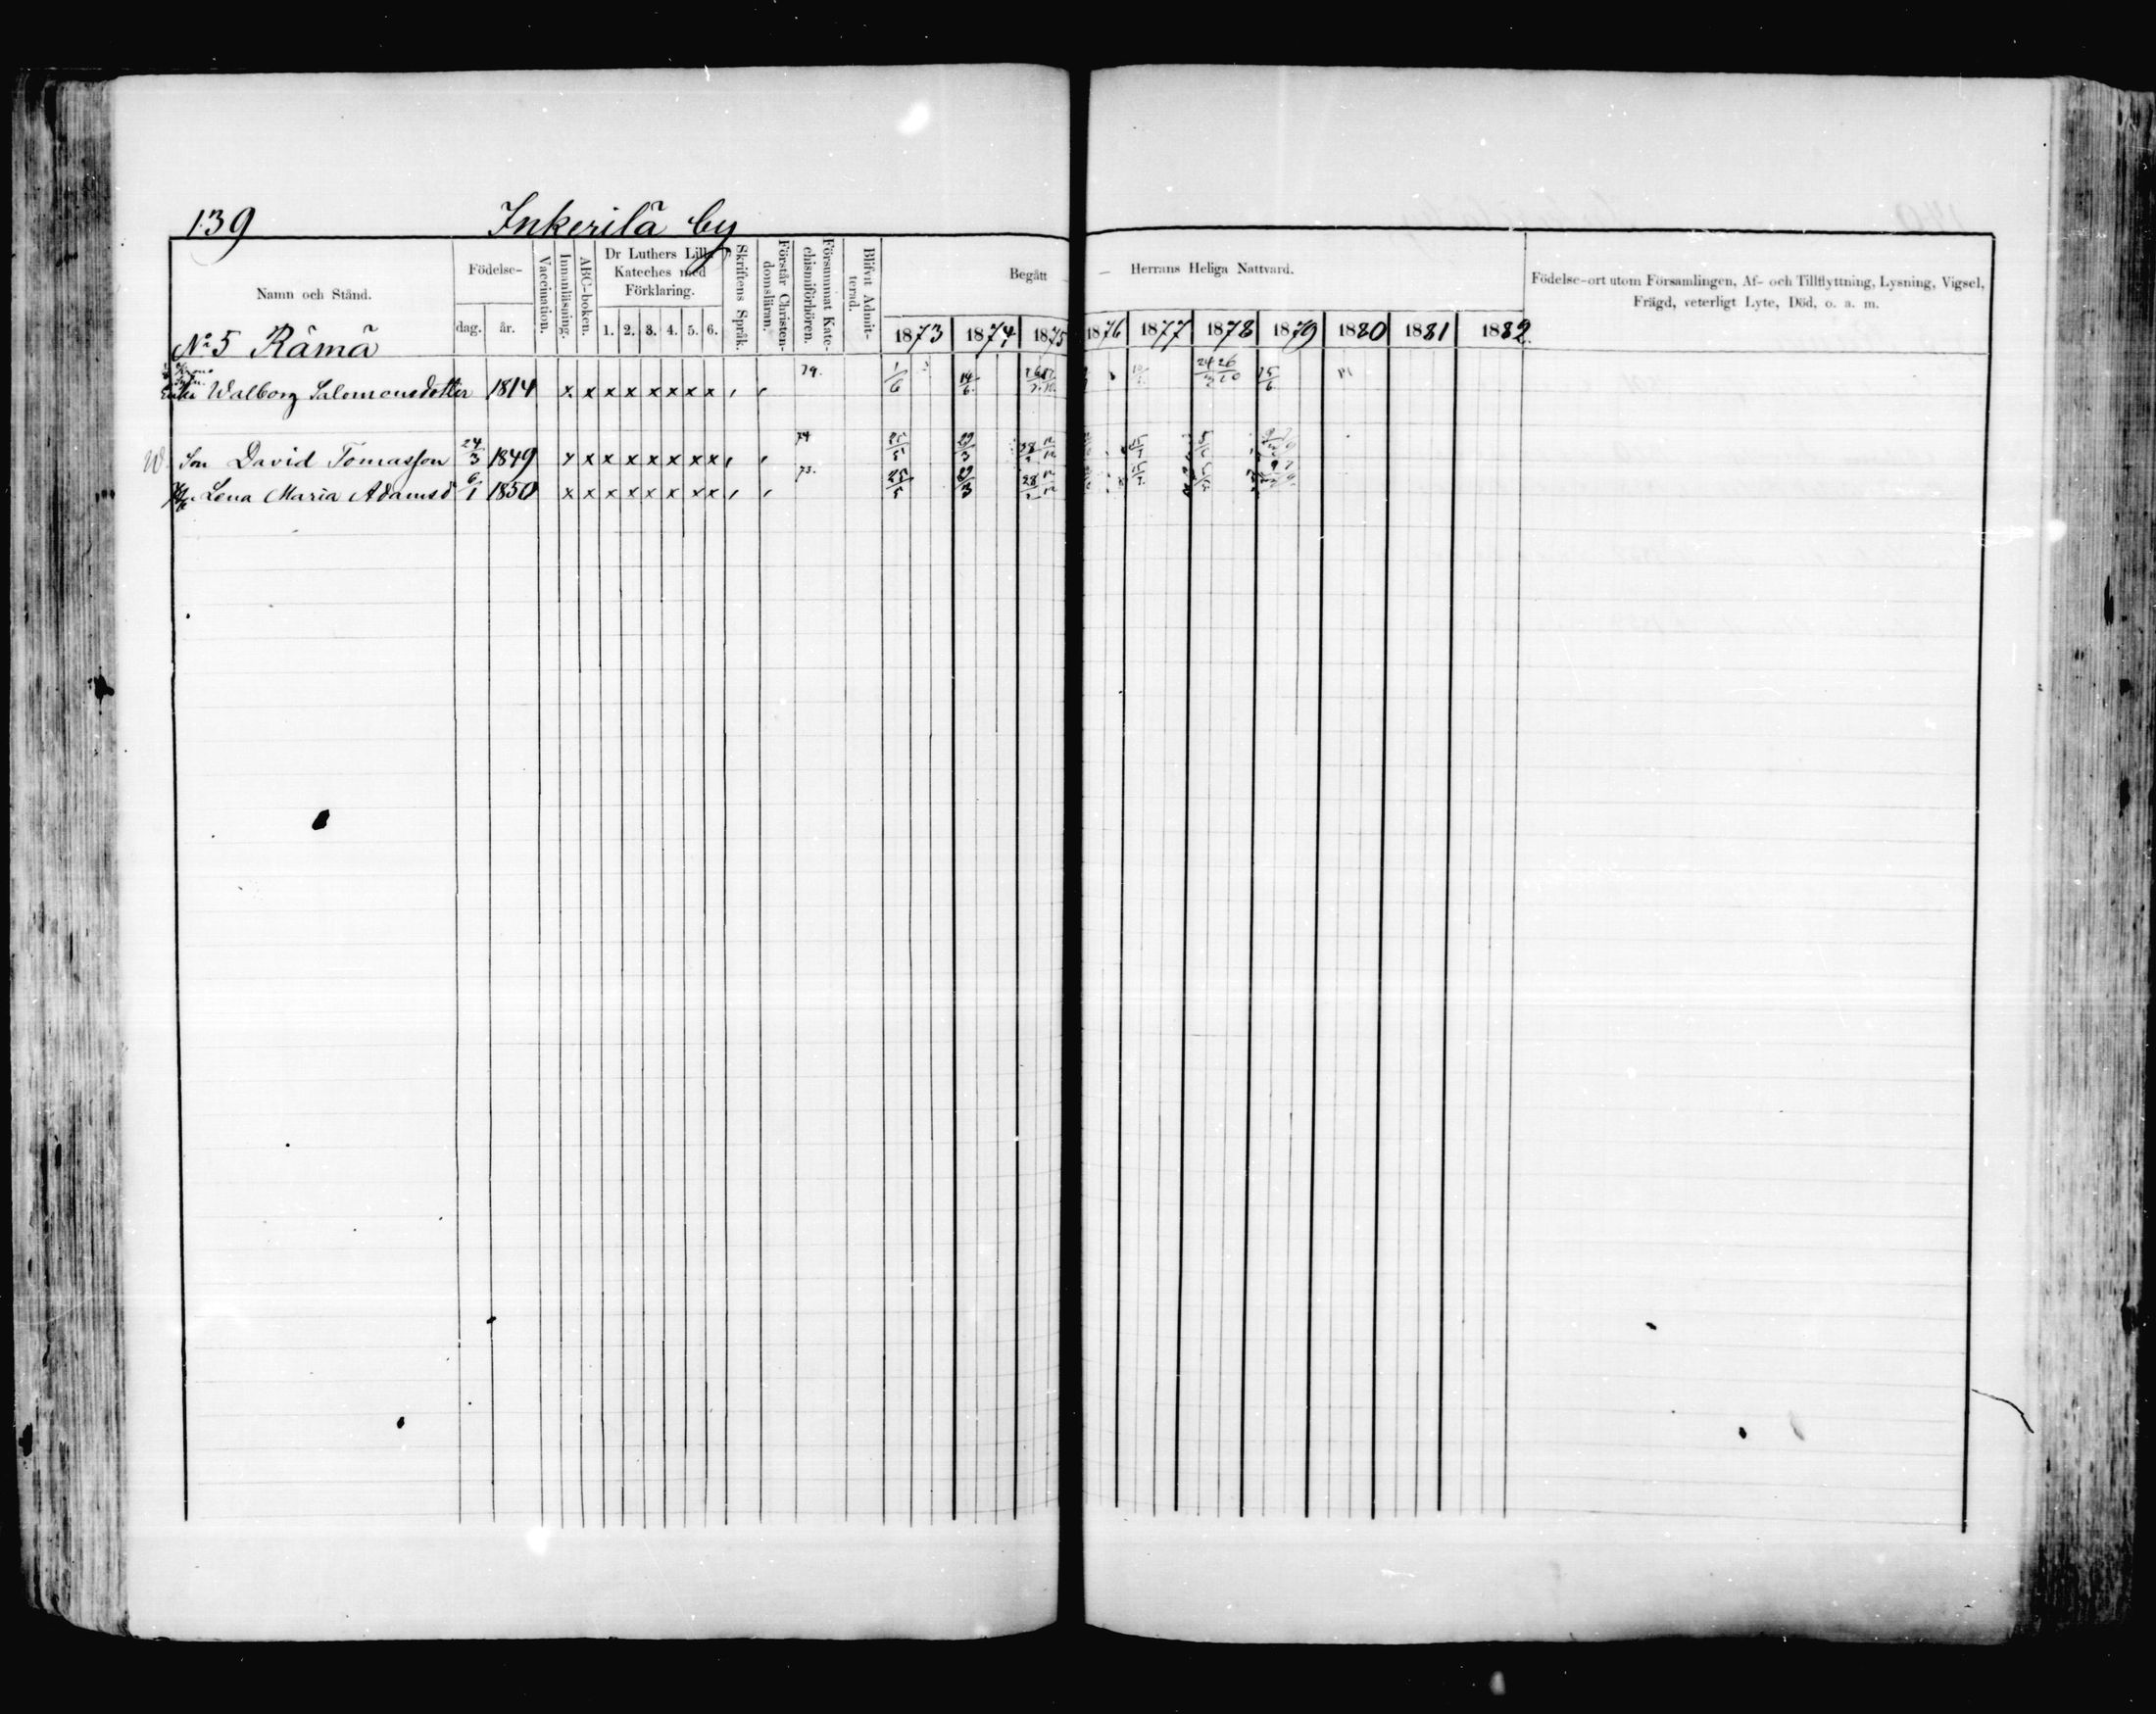 139 Inkerilä by
Namn och Stånd. Födelse- dag. år. Vaccination. Innanläsning. ABC-boken. Dr Luthers Lilla Kateches med Förklaring. 1. 2. 3. 4. 5. 6. Skriftens Språk. Förstår Christendomsläran. Försummat Katechismiförhören. Blifvit Admitterad. Begått — Herrans Heliga Nattvard. 1873 1874 1875 1876 1877 1878 1879 1880 1881 1882 Födelse-ort utom Församlingen, Af- och Tillflyttning, Lysning, Vigsel, Frägd, veterligt Lyte, Död, o. a. m.
No 5 Rämä
Enka Walborg Salomonsdotter 1814 x x x x x x x x 79. 1/6 14/6 24/3 26/10 15/6
W. Son David Tomasson 24/3 1849 x x x x x x x x 74 25/5 29/3
Lena Maria Adamsd 6/1 1850 x x x x x x x x 73. 25/5 29/3